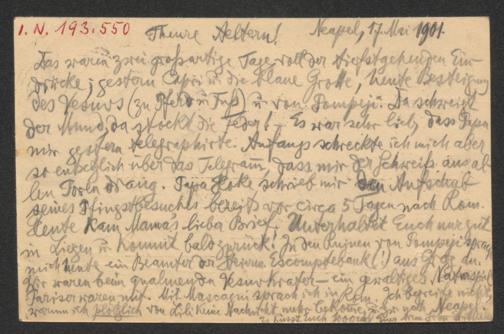 I. N. 193.550
Theure Aeltern! Neapel, 17. Mai 1901.
Das waren zwei großartige Tage voll der tiefstgehenden Ein-
drücke; gestern Capri u. die blaue Grotte, heute Besteigung
des Vesuvs (zu Pferd u. Fuß) u. von Pompeji. Da schweigt
der Mund, da stockt die Feder! – Es war sehr lieb, dass Papa
mir gestern telegraphirte. Anfangs schreckte ich mich aber
so entsetzlich über das Telegramm, dass mir der Schweiß aus al-
len Poren drang. Papa schrieb mir den Aufschub
seines Pfingstbesuches bereits vor circa 5 Tagen nach Rom.
Heute kam Mama's lieber Brief. Unterhaltet Euch nur gut
in u. kommt bald zurück! In den Ruinen von Pompeji sprach
mich heute ein Beamter der Escomptebank (!) aus Graz an.
Wir waren beim qualmenden Vesuvkrater – ein gewaltiges
Pariser waren mit. Mit Mascagni sprach ich in Rom. Ich begreife nicht,
warum ich plötzlich von Lili keine Nachricht mehr Neapel
Es küsst Euch